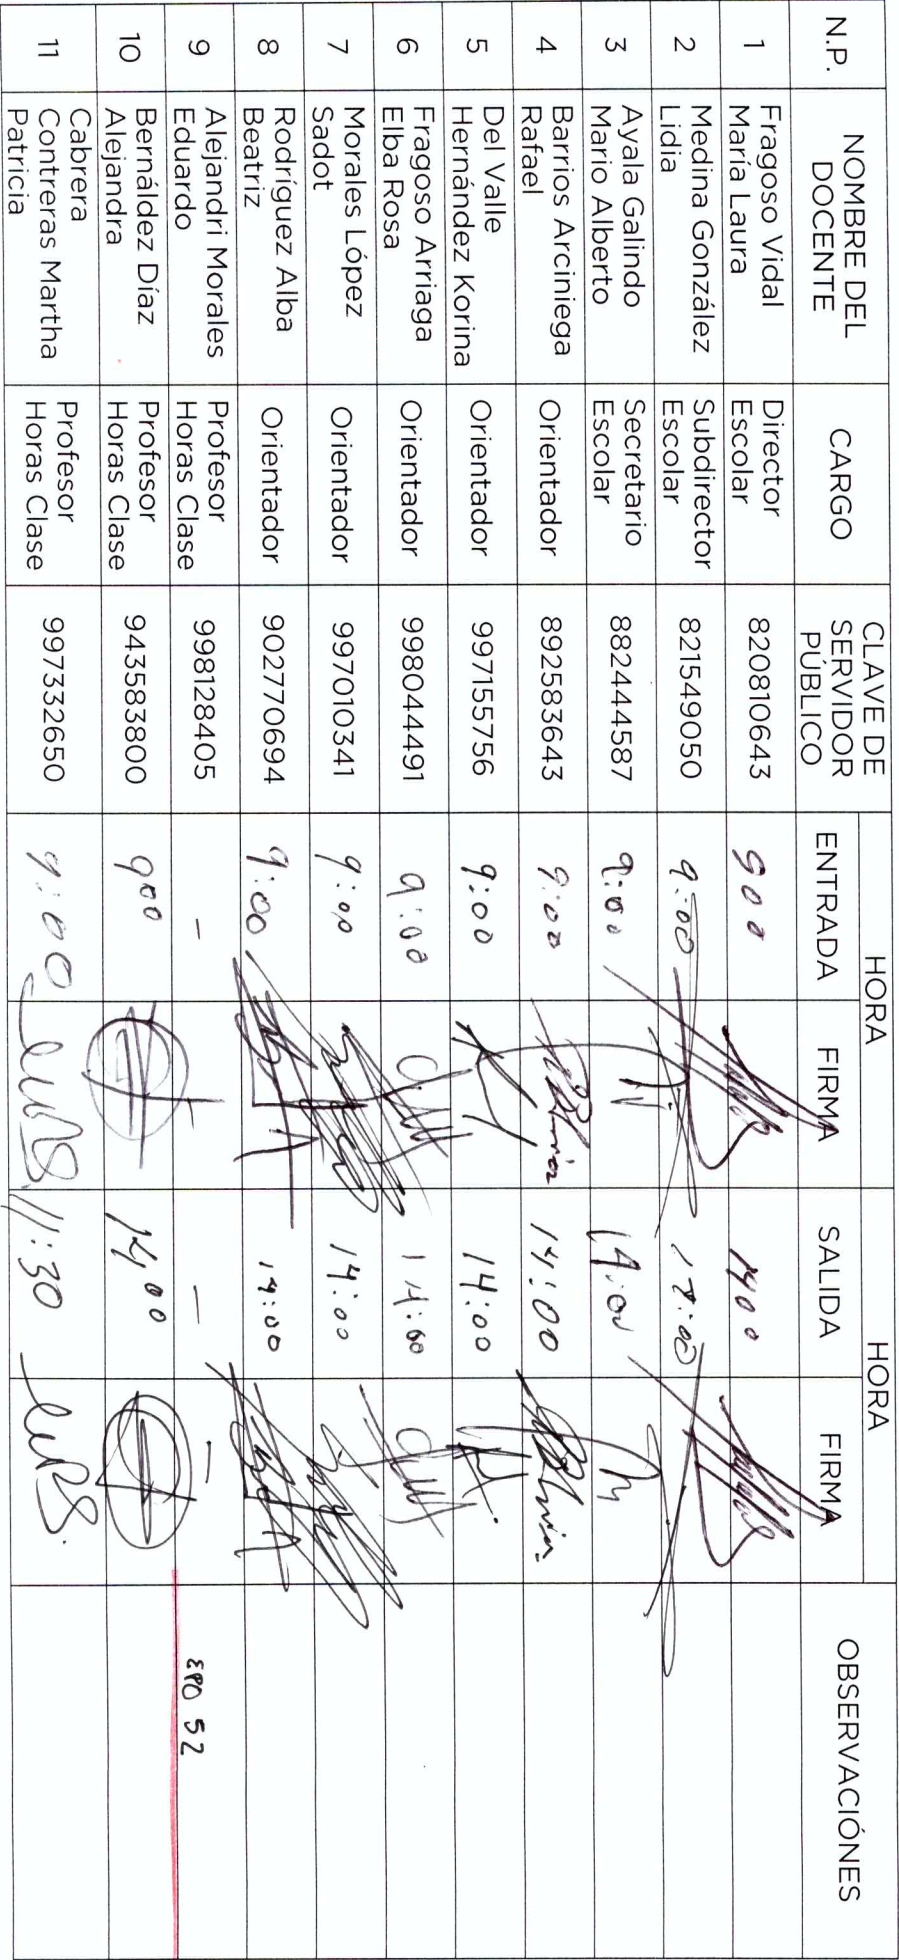 N.P. NOMBRE DEL DOCENTE CARGO CLAVE DE SERVIDOR PÚBLICO HORA HORA OBSERVACIÓNES
ENTRADA FIRMA SALIDA FIRMA
1 Fragoso Vidal María Laura Director Escolar 820810643 900 1400
2 Medina González Lidia Subdirector Escolar 821549050 9:00
3 Ayala Galindo Mario Alberto Secretario Escolar 882444587 9:00 14:00
4 Barrios Arciniega Rafael Orientador 892583643 9:00 14:00
5 Del Valle Hernández Korina Orientador 997155756 9:00 14:00
6 Fragoso Arriaga Elba Rosa Orientador 998044491 9:00 14:00
7 Morales López Sadot Orientador 997010341 9:00 14:00
8 Rodríguez Alba Beatriz Orientador 902770694 9:00 14:00
9 Alejandri Morales Eduardo Profesor Horas Clase 998128405 - - - EPO 52
10 Bernáldez Díaz Alejandra Profesor Horas Clase 943583800 900 14,00
11 Cabrera Contreras Martha Patricia Profesor Horas Clase 997332650 9:00 11:30